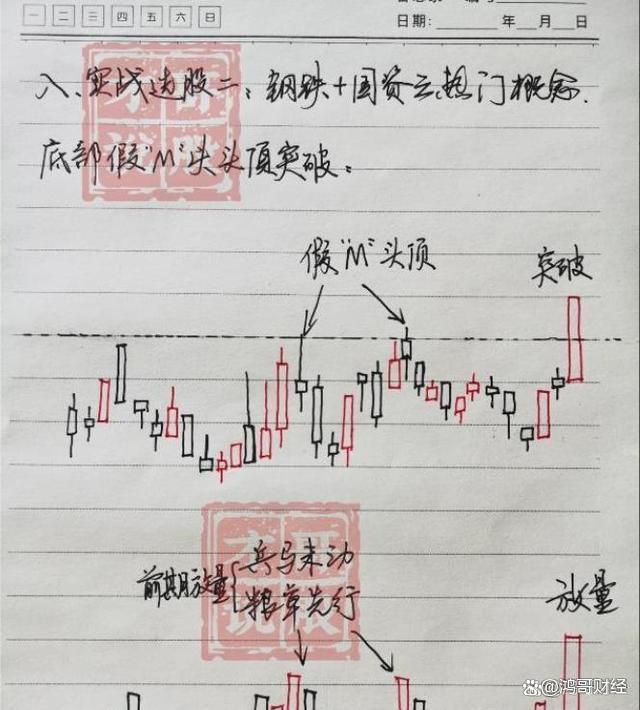 一 二 三 四 五 六 日
日期: 年 月 日
八、实战选股二：钢铁+国资云热门概念.
底部假“M”头头顶突破。
假“M”头顶
突破
前期放量
兵马未动
粮草先行
放量
鸿哥财经